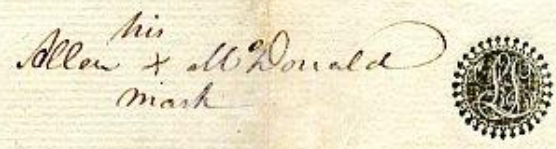 his
Allen x McDonald
mark